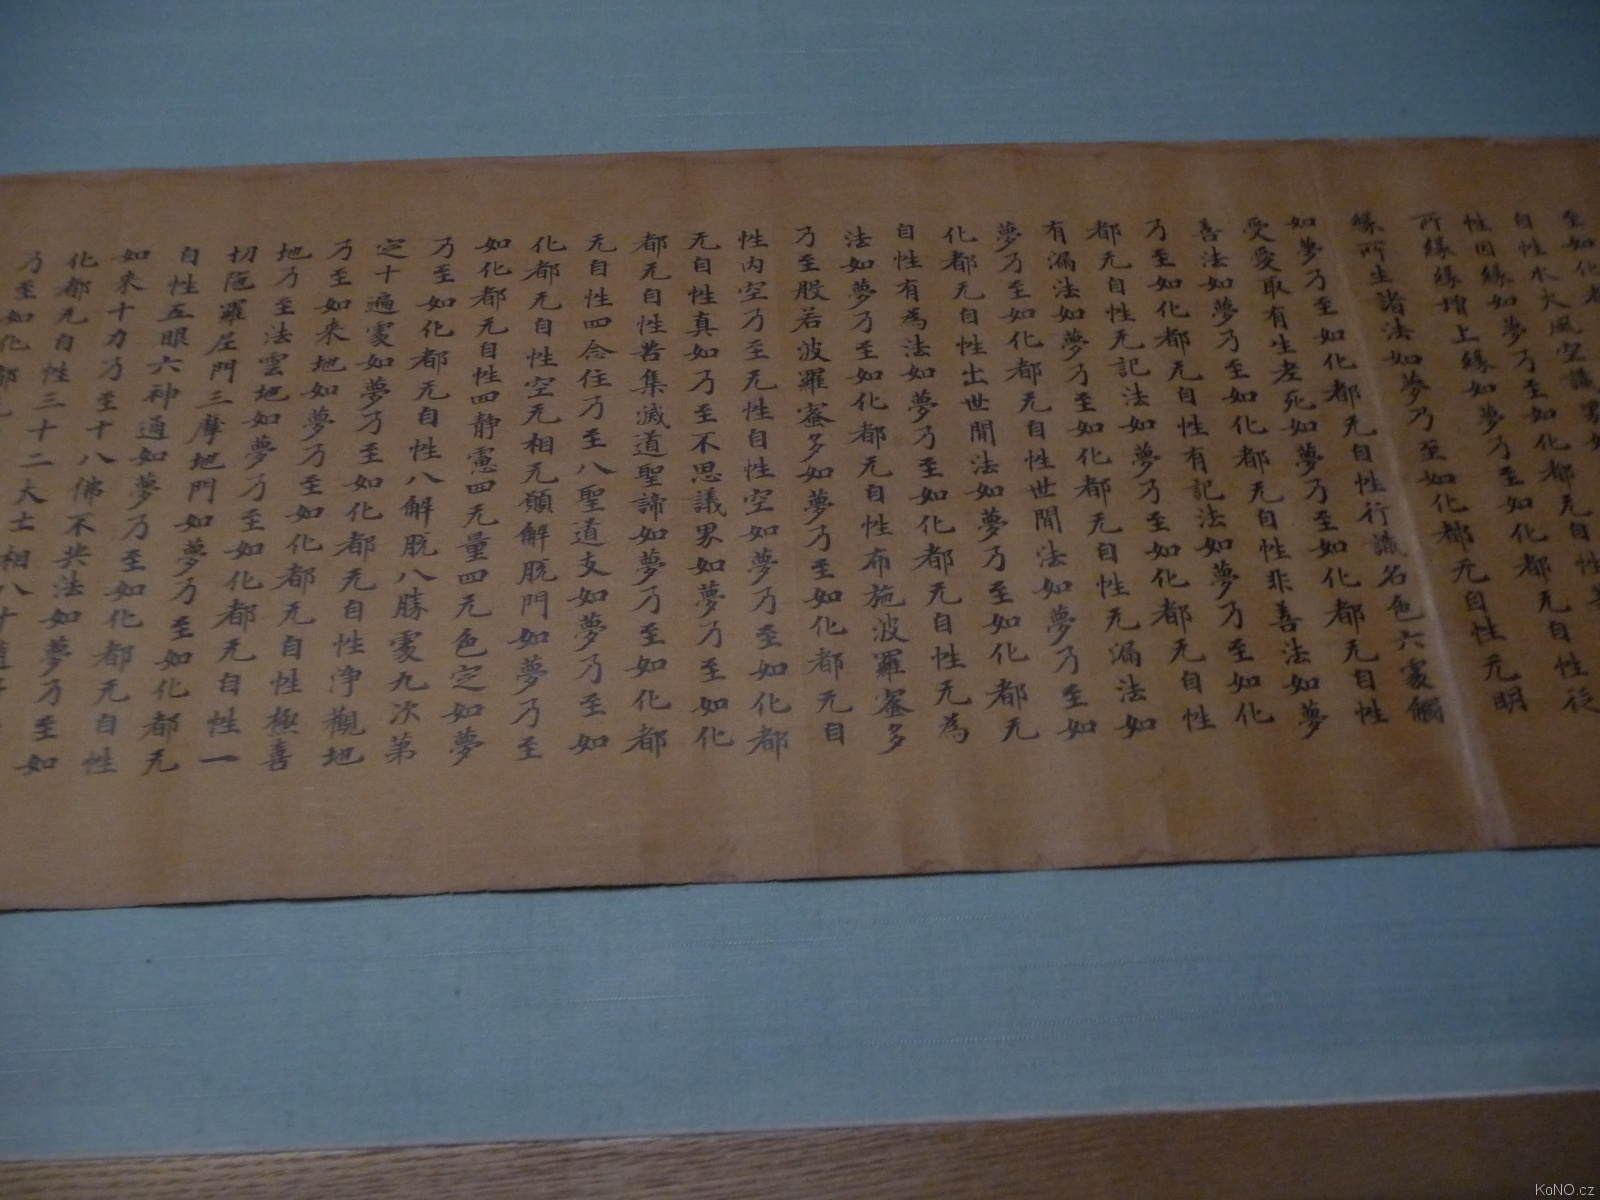 至如化都
自性水火風空識界如夢乃至如化都无自性從
性因緣如夢乃至如化都无自性
所緣緣增上緣如夢乃至如化都无自性无明
緣所生諸法如夢乃至如化都无自性行識名色六處觸
如夢乃至如化都无自性
受愛取有生老死如夢乃至如化都无自性非善法如夢
善法如夢乃至如化都无自性
乃至如化都无自性有記法如夢乃至如化都无自性
都无自性无記法如夢乃至如化都无自性无漏法如
有漏法如夢乃至如化都无自性世間法如夢乃至如
夢乃至如化都无自性出世間法如夢乃至如化都无
化都无自性有為法如夢乃至如化都无自性无為
自性有為法如夢乃至如化都无自性布施波羅蜜多
法如夢乃至如化都无自
乃至般若波羅蜜多如夢乃至如化都无自
性內空乃至无性自性空如夢乃至如化都
无自性真如乃至不思議界如夢乃至如化
都无自性苦集滅道聖諦如夢乃至如化都
无自性四念住乃至八聖道支如夢乃至如
化都无自性空无相无願解脫門如夢乃至
如化都无自性四靜慮四无量四无色定如夢
乃至如化都无自性八解脫八勝處九次第
定十遍處如夢乃至如化都无自性淨觀地
乃至如來地如夢乃至如化都无自性極喜
地乃至法雲地如夢乃至如化都无自性一
切陁羅尼門三摩地門如夢乃至如化都无
自性五眼六神通如夢乃至如化都无自性
如來十力乃至十八佛不共法如夢乃至如
化都无自性三十二大士相八十
乃至如化都
KoNO.cz